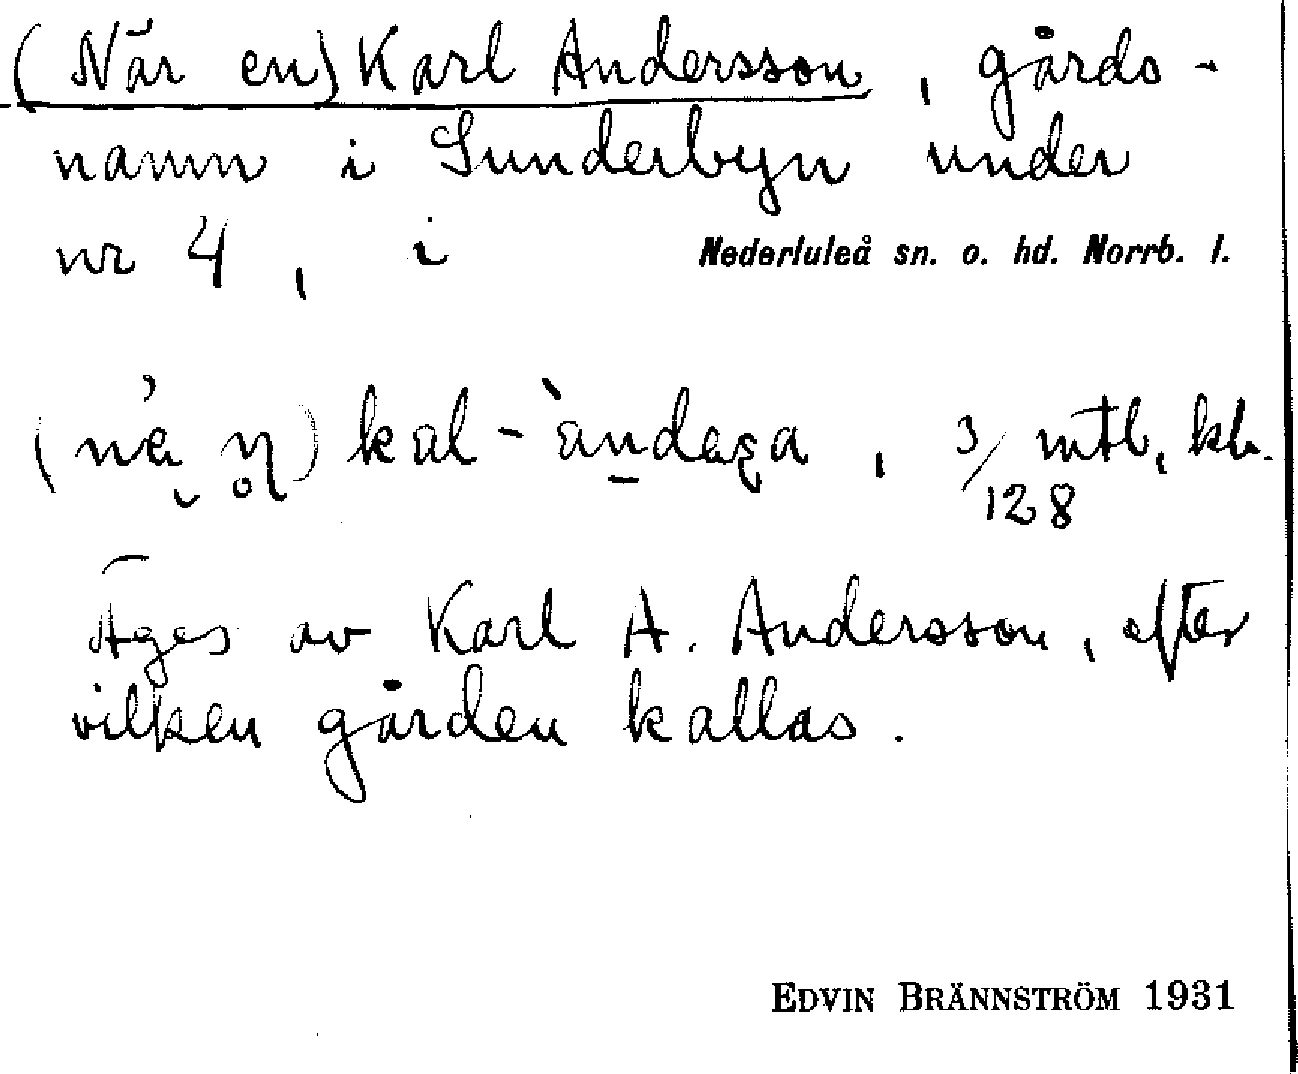 (När en) Karl Andersson, gårds-
namn i Sunderbyn under
nr 4, i Nederluleå sn. o. hd. Norrb. l.
kal-àndaga, 3/128 mtl, kl.
Äges av Karl A. Andersson, efter
vilken gården kallas.
EDVIN BRÄNNSTRÖM 1931